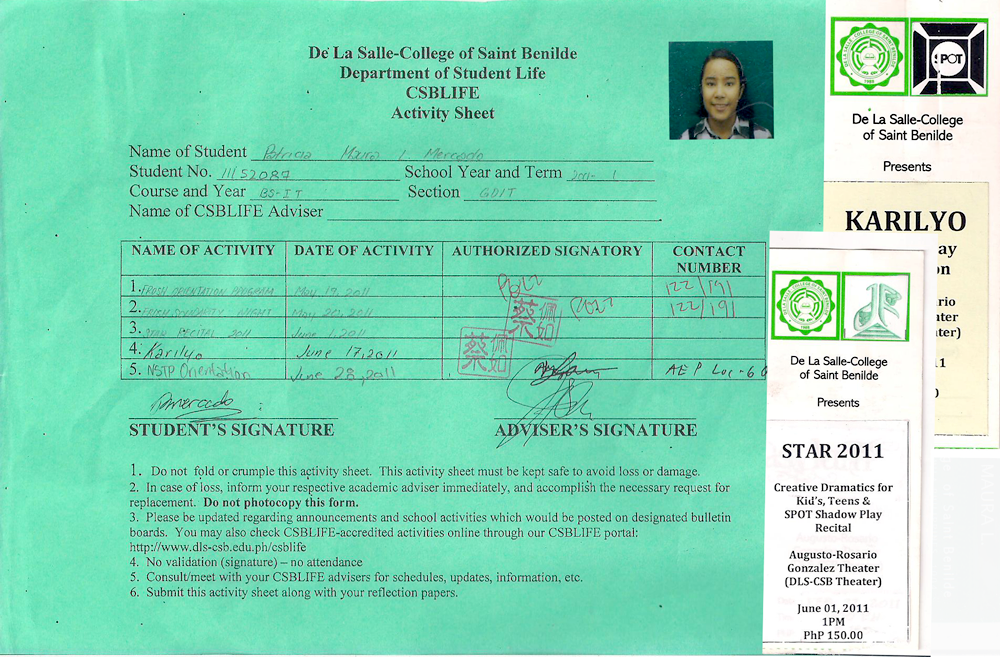 De La Salle-College of Saint Benilde
Department of Student Life
CSBLIFE
Activity Sheet
Name of Student Patricia Maira L Mercado
Student No. 11152087 School Year and Term 2011- 1
Course and Year BS-IT Section GDIT
Name of CSBLIFE Adviser
NAME OF ACTIVITY DATE OF ACTIVITY AUTHORIZED SIGNATORY CONTACT NUMBER
1. FROSH ORIENTATION PROGRAM May 17, 2011 122/191
2. FROSH NIGHT May 20, 2011 122/191
3. STAR RECITAL 2011 June 1, 2011
4. Karilyo June 17, 2011
5. NSTP Orientation June 28, 2011 AEP Loc-
蔡佩如
蔡佩如
STUDENT'S SIGNATURE ADVISER'S SIGNATURE
1. Do not fold or crumple this activity sheet. This activity sheet must be kept safe to avoid loss or damage.
2. In case of loss, inform your respective academic adviser immediately, and accomplish the necessary request for
replacement. Do not photocopy this form.
3. Please be updated regarding announcements and school activities which would be posted on designated bulletin
boards. You may also check CSBLIFE-accredited activities online through our CSBLIFE portal:
http://www.dls-csb.edu.ph/csblife
4. No validation (signature) – no attendance
5. Consult/meet with your CSBLIFE advisers for schedules, updates, information, etc.
6. Submit this activity sheet along with your reflection papers.
SPOT
De La Salle-College
of Saint Benilde
Presents
KARILYO
ay
on
ario
ater
ter)
11
De La Salle-College
of Saint Benilde
Presents
STAR 2011
Creative Dramatics for
Kid's, Teens &
SPOT Shadow Play
Recital
Augusto-Rosario
Gonzalez Theater
(DLS-CSB Theater)
June 01, 2011
1PM
PhP 150.00